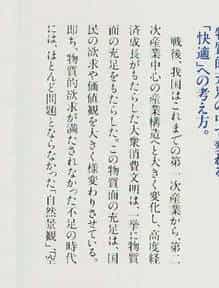 「快適」への考え方。
戦後、我国はこれまでの第一次産業から、第二
次産業中心の産業構造へと大きく変化し、高度経
済成長がもたらした大衆消費文明は、一挙に物質
面の充足をもたらした。この物質面の充足は、国
民の欲求や価値観を大きく様変わりさせている。
即ち、物質的欲求が満たされなかった不足の時代
には、ほとんど問題とならなかった「自然景観」「空